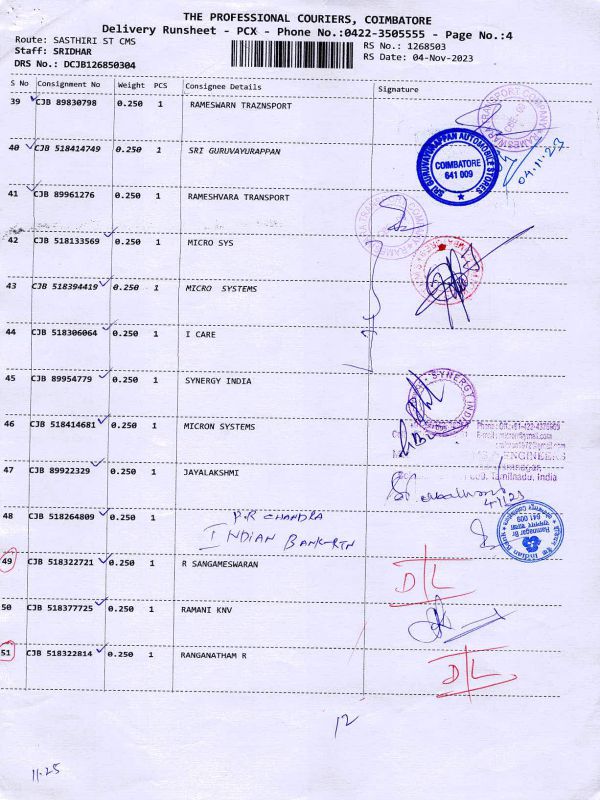 THE PROFESSIONAL COURIERS, COIMBATORE
Delivery Runsheet - PCX - Phone No.:0422-3505555 - Page No.:4
Route: SASTHIRI ST CMS RS No.: 1268503
Staff: SRIDHAR RS Date: 04-Nov-2023
DRS No.: DCJB126850304
S No Consignment No Weight PCS Consignee Details Signature
39 CJB 89830798 0.250 1 RAMESWARN TRAZNSPORT
40 CJB 518414749 0.250 1 SRI GURUVAYURAPPAN
SRI GURUVAYURAPPAN AUTOMOBILE STORES
COIMBATORE
641 009
04.11.23
41 CJB 89961276 0.250 1 RAMESHVARA TRANSPORT
42 CJB 518133569 0.250 1 MICRO SYS
43 CJB 518394419 0.250 1 MICRO SYSTEMS
44 CJB 518306064 0.250 1 I CARE
45 CJB 89954779 0.250 1 SYNERGY INDIA
SYNERGY INDIA
46 CJB 518414681 0.250 1 MICRON SYSTEMS
ENGINEERS
Tamilnadu, India
47 CJB 89922329 0.250 1 JAYALAKSHMI
4/11/23
48 CJB 518264809 0.250 1 P.R CHANDRA
INDIAN BANK-RTN
Indian Bank
Ramnagar Br
641 009
49 CJB 518322721 0.250 1 R SANGAMESWARAN
D L
50 CJB 518377725 0.250 1 RAMANI KNV
51 CJB 518322814 0.250 1 RANGANATHAM R
D L
12
11.25